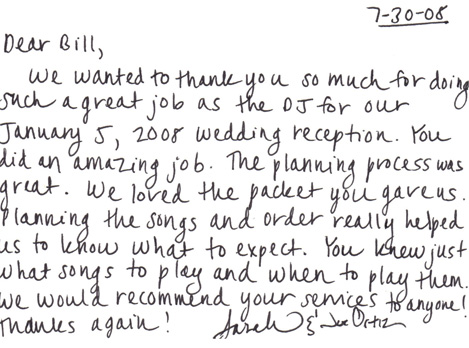 7-30-08
Dear Bill,
We wanted to thank you so much for doing
such a great job as the DJ for our
January 5, 2008 wedding reception. You
did an amazing job. The planning process was
great. We loved the packet you gave us.
Planning the songs and order really helped
us to know what to expect. You knew just
what songs to play and when to play them.
We would recommend your services to anyone!
Thanks again! Sarah & Joe Ortiz